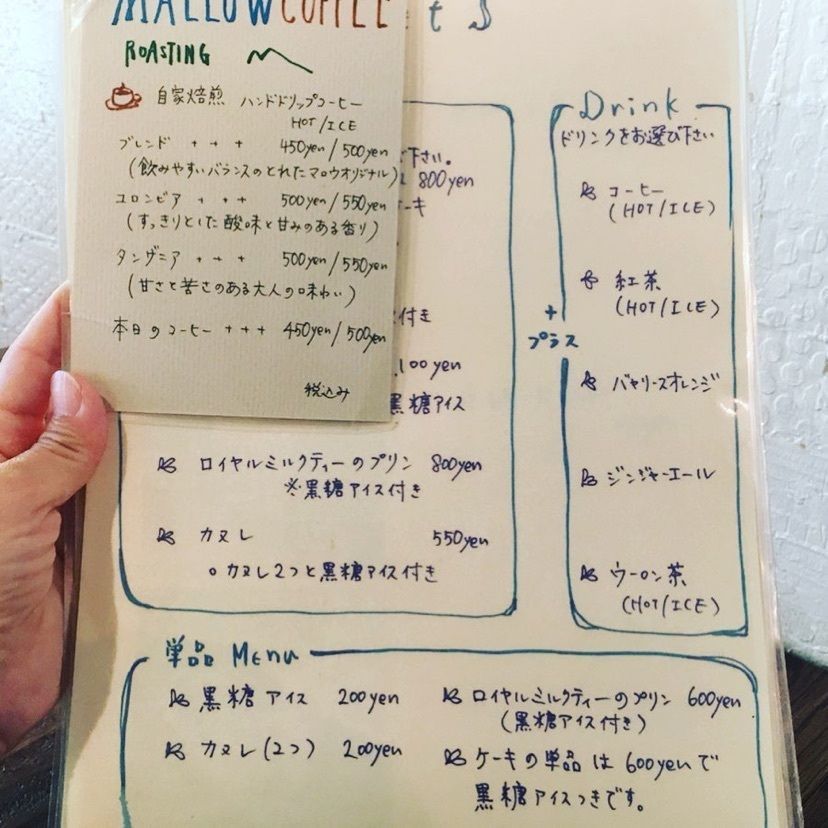 MALLOW COFFEE
ROASTING
自家焙煎 ハンドドリップコーヒー
HOT/ICE
ブレンド + + + 450yen/500yen
(飲みやすいバランスのとれたマロウオリジナル)
コロンビア + + + 500yen/550yen
(すっきりとした酸味と甘みのある香り)
タンザニア + + + 500yen/550yen
(甘さと苦さのある大人の味わい)
本日のコーヒー + + + 450yen/500yen
税込み
ts
下さい。
800yen
ーキ
付き
,100yen
黒糖アイス
ロイヤルミルクティーのプリン 800yen
※黒糖アイス付き
カヌレ 550yen
○カヌレ2つと黒糖アイス付き
+
プラス
Drink
ドリンクをお選び下さい
コーヒー
(HOT/ICE)
紅茶
(HOT/ICE)
バヤリースオレンジ
ジンジャーエール
ウーロン茶
(HOT/ICE)
単品 Menu
黒糖アイス 200yen
カヌレ(2つ) 200yen
ロイヤルミルクティーのプリン 600yen
(黒糖アイス付き)
ケーキの単品は600yenで
黒糖アイスつきです。